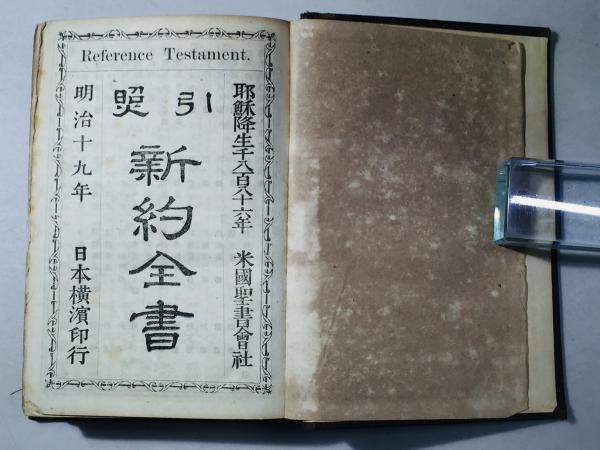 Reference Testament.
耶穌降生千八百八十六年 米國聖書會社
引照
新約全書
明治十九年 日本橫濱印行